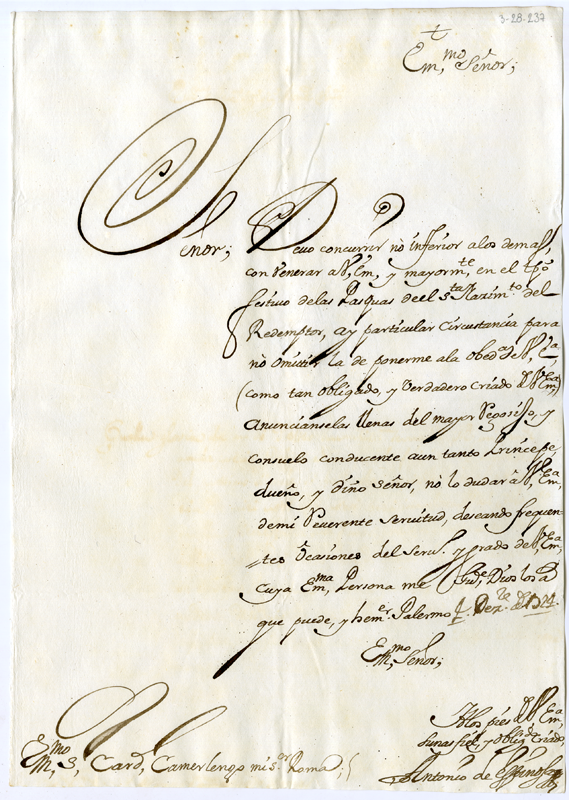 3-28-237
†
Em,mo Señor;
Señor; Devo concurrir no inferior a los demas,
con Venerar a V, Em, y mayormte, en el tpo
festivo de las Pasquas de el Sto Nazimto del
Redemptor, ay particular Circustancia para
no omittir la de ponerme ala obeda de V, Ea
(como tan obligado, y Verdadero Criado de V, Ema,)
Anunciánselas llenas del mayor Regosijo, y
consuelo conducente a un tanto Princepe,
dueño, y diño Señor, no lo dudará V, Ema,
de mi Reverente Servitud, deseando frequen-
=tes Ocasiones del Servo. y grado de V, Ema,
Cuya Emma, Persona me Gude, Dios los a
que puede, y hemer, Palermo Dezre de
Em,mo Señor;
A los pies de V, Ema,
su mas fiel, y obligdo Criado,
Antonio de Espinosa
Em,mo S, Card, Camerlengo mi Sor Roma;